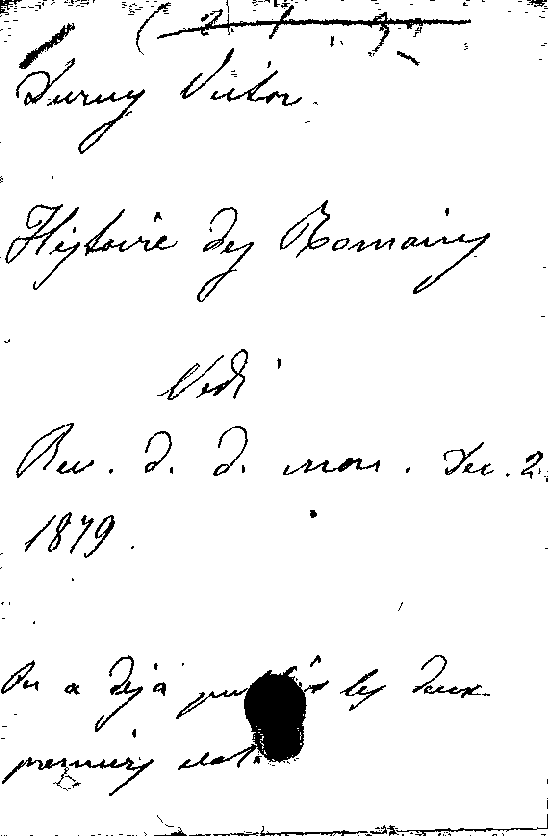 Duruy Victor.
Histoire des Romains
Vedi
Rev. d. d. mon. Dec. 2
1879.
On a déjà publiés les deux
premiers vol.